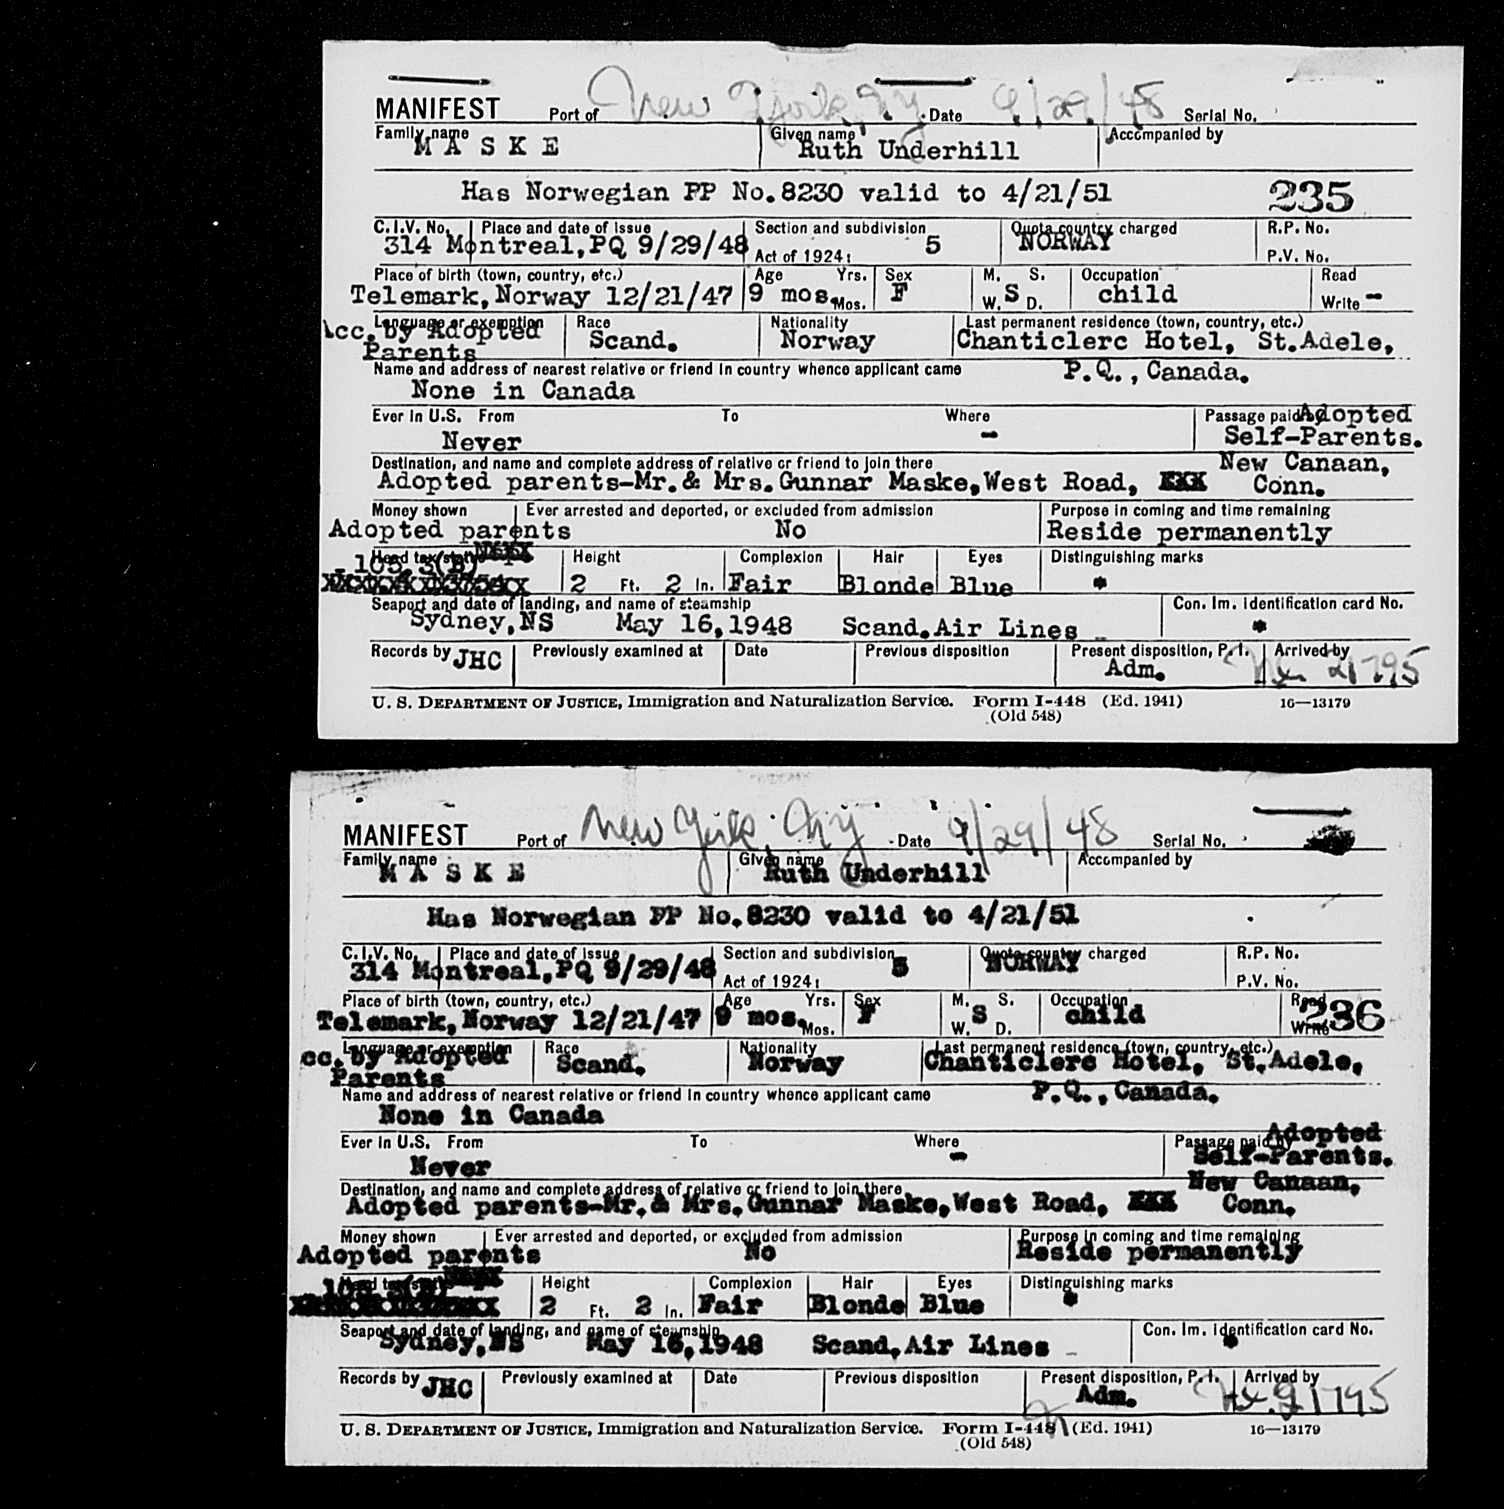 MANIFEST Port of New York, NY Date 9/29/48 Serial No.
Family name Given name Accompanied by
M A S K E Ruth Underhill
Has Norwegian PP No.8230 valid to 4/21/51 235
C.I.V. No. Place and date of issue Section and subdivision Quota country charged R.P. No.
314 Montreal,PQ 9/29/48 Act of 1924: 5 NORWAY P.V. No.
Place of birth (town, country, etc.) Age Yrs. Sex M. S. Occupation Read
Telemark,Norway 12/21/47 9 mos. Mos. F W. S D. child Write -
Language or exemption Race Nationality Last permanent residence (town, country, etc.)
cc. by Adopted Scand. Norway Chanticlerc Hotel, St.Adele,
Parents
Name and address of nearest relative or friend in country whence applicant came P.Q., Canada.
None in Canada
Ever in U.S. From To Where Passage paid by Adopted
Never - Self-Parents.
Destination, and name and complete address of relative or friend to join there New Canaan,
Adopted parents-Mr.& Mrs.Gunnar Maske,West Road, XXX Conn.
Money shown Ever arrested and deported, or excluded from admission Purpose in coming and time remaining
Adopted parents No Reside permanently
Head tax status Height Complexion Hair Eyes Distinguishing marks
105.3(B) 2 Ft. 2 In. Fair Blonde Blue
Seaport and date of landing, and name of steamship Con. Im. Identification card No.
Sydney,NS May 16,1948 Scand.Air Lines
Records by JHC Previously examined at Date Previous disposition Present disposition, P. I. Arrived by
Adm. 21795
U. S. DEPARTMENT OF JUSTICE, Immigration and Naturalization Service. Form I-448 (Ed. 1941) 16—13179
(Old 548)
MANIFEST Port of New York, NY Date 9/29/48 Serial No.
Family name Given name Accompanied by
M A S K E Ruth Underhill
Has Norwegian PP No.8230 valid to 4/21/51
C.I.V. No. Place and date of issue Section and subdivision Quota country charged R.P. No.
314 Montreal,PQ 9/29/48 Act of 1924: 5 NORWAY P.V. No.
Place of birth (town, country, etc.) Age Yrs. Sex M. S. Occupation Read
Telemark,Norway 12/21/47 9 mos. Mos. F W. S D. child Write 236
Language or exemption Race Nationality Last permanent residence (town, country, etc.)
cc. by Adopted Scand. Norway Chanticlerc Hotel, St.Adele,
Parents
Name and address of nearest relative or friend in country whence applicant came P.Q., Canada.
None in Canada
Ever in U.S. From To Where Passage paid by Adopted
Never - Self-Parents.
Destination, and name and complete address of relative or friend to join there New Canaan,
Adopted parents-Mr.& Mrs.Gunnar Maske,West Road, XXX Conn.
Money shown Ever arrested and deported, or excluded from admission Purpose in coming and time remaining
Adopted parents No Reside permanently
Head tax status Height Complexion Hair Eyes Distinguishing marks
105.3(B) 2 Ft. 2 In. Fair Blonde Blue
Seaport and date of landing, and name of steamship Con. Im. Identification card No.
Sydney,NS May 16,1948 Scand.Air Lines
Records by JHC Previously examined at Date Previous disposition Present disposition, P. I. Arrived by
Adm. 21795
U. S. DEPARTMENT OF JUSTICE, Immigration and Naturalization Service. Form I-448 (Ed. 1941) 16—13179
(Old 548)